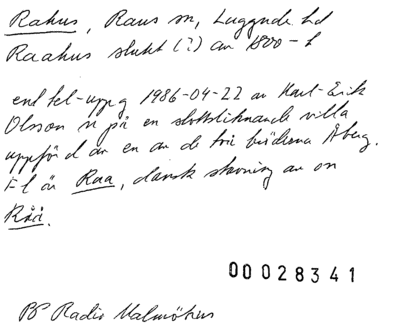 Rahus, Raus sn, Luggude hd
Raahus slutet (?) av 1800-t
enl tel-uppg 1986-04-22 av Karl-Erik
Olsson n på en slottsliknande villa
uppförd av en av de tre bröderna Åberg.
Fl är Raa, dansk skrivning av on
Råå.
00028341
PP Radio Malmöhus